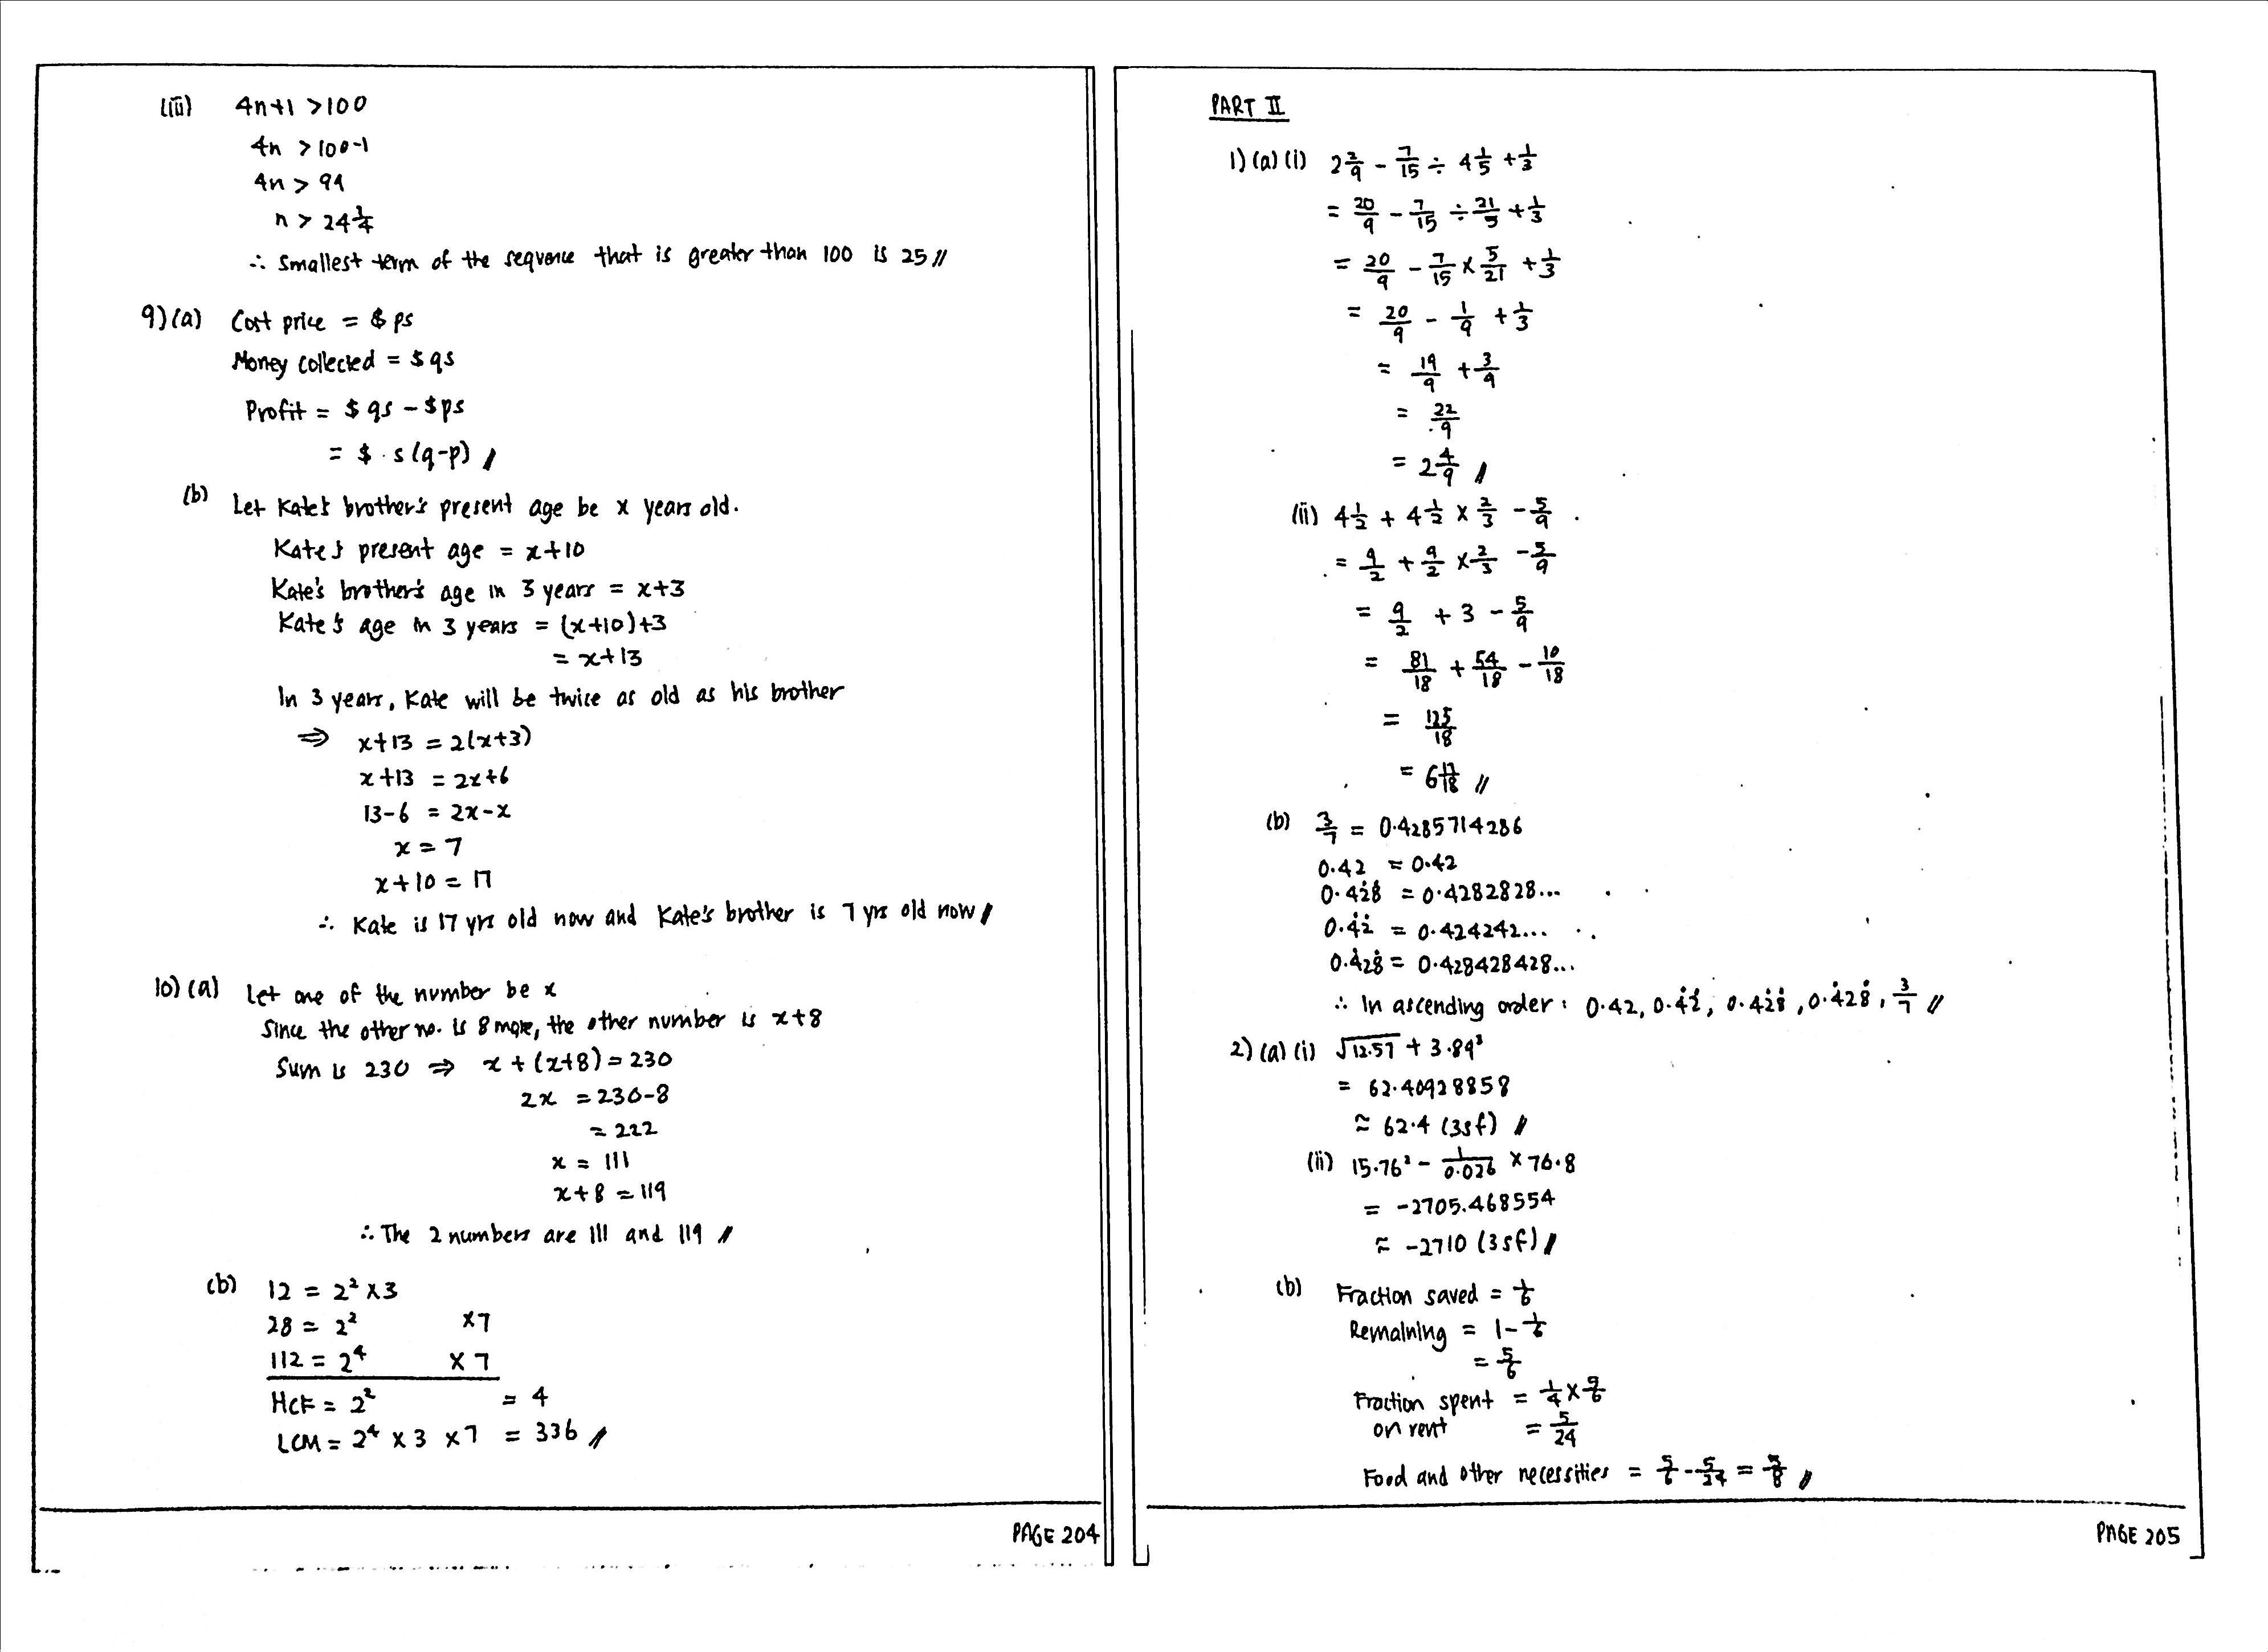 (iii) 4n+1 >100
4n > 100-1
4n > 99
n > 24 3/4
∴ Smallest term of the sequence that is greater than 100 is 25 //
9)(a) Cost price = $ ps
Money collected = $ qs
Profit = $ qs - $ ps
= $ s(q-p) //
(b) Let Kate's brother's present age be x years old.
Kate's present age = x+10
Kate's brother's age in 3 years = x+3
Kate's age in 3 years = (x+10)+3
= x+13
In 3 years, Kate will be twice as old as his brother
⇒ x+13 = 2(x+3)
x+13 = 2x+6
13-6 = 2x-x
x = 7
x+10 = 17
∴ Kate is 17 yrs old now and Kate's brother is 7 yrs old now //
10)(a) Let one of the number be x
Since the other no. is 8 more, the other number is x+8
Sum is 230 ⇒ x + (x+8) = 230
2x = 230-8
= 222
x = 111
x+8 = 119
∴ The 2 numbers are 111 and 119 //
(b) 12 = 2² ×3
28 = 2² ×7
112 = 2⁴ ×7
HCF = 2² = 4
LCM = 2⁴ × 3 ×7 = 336 //
PAGE 204
PART II
1)(a)(i) 2 2/9 - 7/15 ÷ 4 1/5 + 1/3
= 20/9 - 7/15 ÷ 21/5 + 1/3
= 20/9 - 7/15 × 5/21 + 1/3
= 20/9 - 1/9 + 1/3
= 19/9 + 3/9
= 22/9
= 2 4/9 //
(ii) 4 1/2 + 4 1/2 × 2/3 - 5/9
= 9/2 + 9/2 × 2/3 - 5/9
= 9/2 + 3 - 5/9
= 81/18 + 54/18 - 10/18
= 125/18
= 6 17/18 //
(b) 3/7 = 0.4285714286
0.42 = 0.42
0.42̇8̇ = 0.4282828...
0.4̇2̇ = 0.424242...
0.4̇28̇ = 0.428428428...
∴ In ascending order: 0.42, 0.4̇2̇, 0.42̇8̇, 0.4̇28̇, 3/7 //
2)(a)(i) √12.57 + 3.89³
= 62.40928858
≈ 62.4 (3sf) //
(ii) 15.76² - 1/0.026 × 76.8
= -2705.468554
≈ -2710 (3sf) //
(b) Fraction saved = 1/6
Remaining = 1 - 1/6
= 5/6
Fraction spent = 1/4 × 5/6
on rent = 5/24
Food and other necessities = 5/6 - 5/24 = 5/8 //
PAGE 205